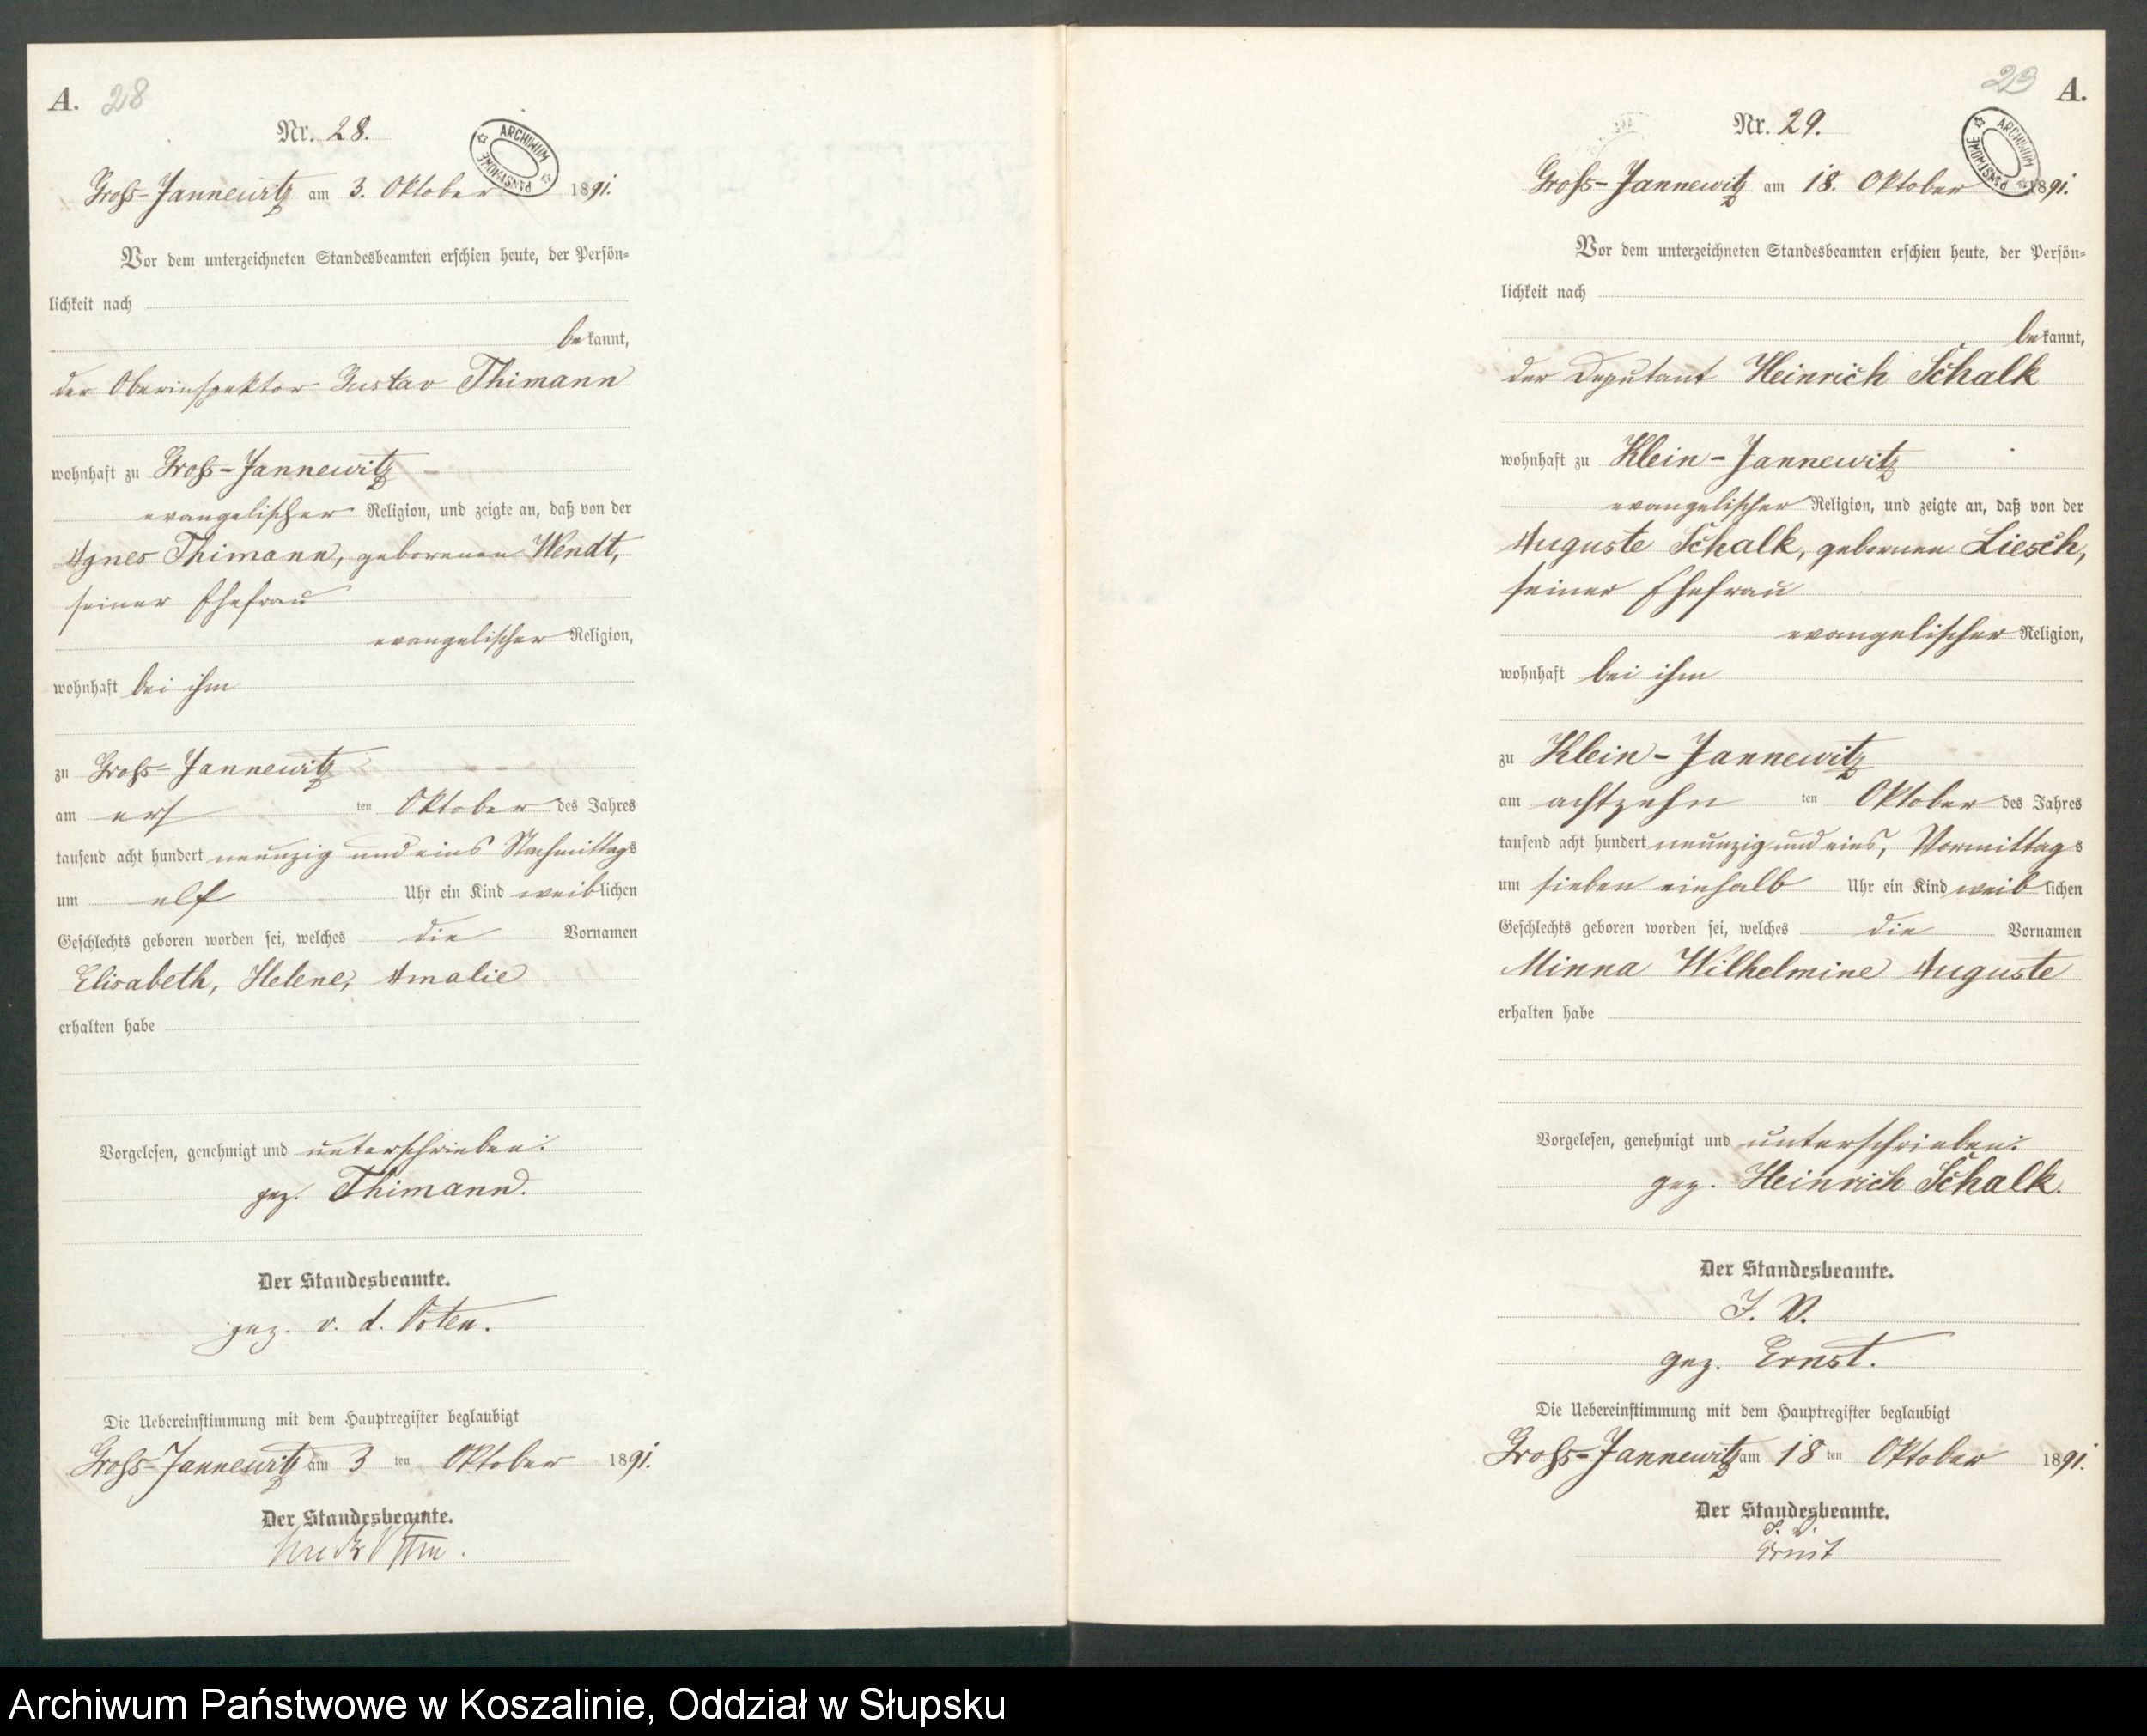 A. 28
Nr. 28.
ARCHIWUM PAŃSTWOWE
Groß-Jannewitz am 3. Oktober 1891.
Vor dem unterzeichneten Standesbeamten erschien heute, der Persön-
lichkeit nach
bekannt,
der Oberinspektor Gustav Thimann
wohnhaft zu Groß-Jannewitz
evangelischer Religion, und zeigte an, daß von der
Agnes Thimann, geborenen Wendt,
seiner Ehefrau
evangelischer Religion,
wohnhaft bei ihm
zu Groß-Jannewitz
am erst ten Oktober des Jahres
tausend acht hundert neunzig und eins Nachmittags
um elf Uhr ein Kind weiblichen
Geschlechts geboren worden sei, welches die Vornamen
Elisabeth, Helene, Amalie
erhalten habe
Vorgelesen, genehmigt und unterschrieben:
gez. Thimann.
Der Standesbeamte.
gez. v. d. Osten.
Die Uebereinstimmung mit dem Hauptregister beglaubigt
Groß-Jannewitz am 3 ten Oktober 1891.
Der Standesbeamte.
A.
Nr. 29.
ARCHIWUM PAŃSTWOWE
Groß-Jannewitz am 18. Oktober 1891.
Vor dem unterzeichneten Standesbeamten erschien heute, der Persön-
lichkeit nach
bekannt,
der Deputant Heinrich Schalk
wohnhaft zu Klein-Jannewitz
evangelischer Religion, und zeigte an, daß von der
Auguste Schalk, gebornen Liesch,
seiner Ehefrau
evangelischer Religion,
wohnhaft bei ihm
zu Klein-Jannewitz
am achtzehn ten Oktober des Jahres
tausend acht hundert neunzig und eins, Vormittags
um sieben einhalb Uhr ein Kind weiblichen
Geschlechts geboren worden sei, welches die Vornamen
Minna Wilhelmine Auguste
erhalten habe
Vorgelesen, genehmigt und unterschrieben:
gez. Heinrich Schalk.
Der Standesbeamte.
J. V.
gez. Ernst.
Die Uebereinstimmung mit dem Hauptregister beglaubigt
Groß-Jannewitz am 18 ten Oktober 1891.
Der Standesbeamte.
J. V.
Ernst
Archiwum Państwowe w Koszalinie, Oddział w Słupsku